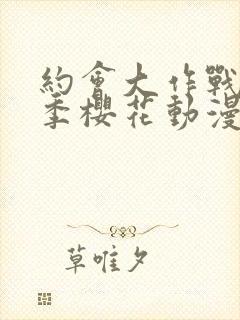 約會大作戰
季櫻花動漫
草唯夕